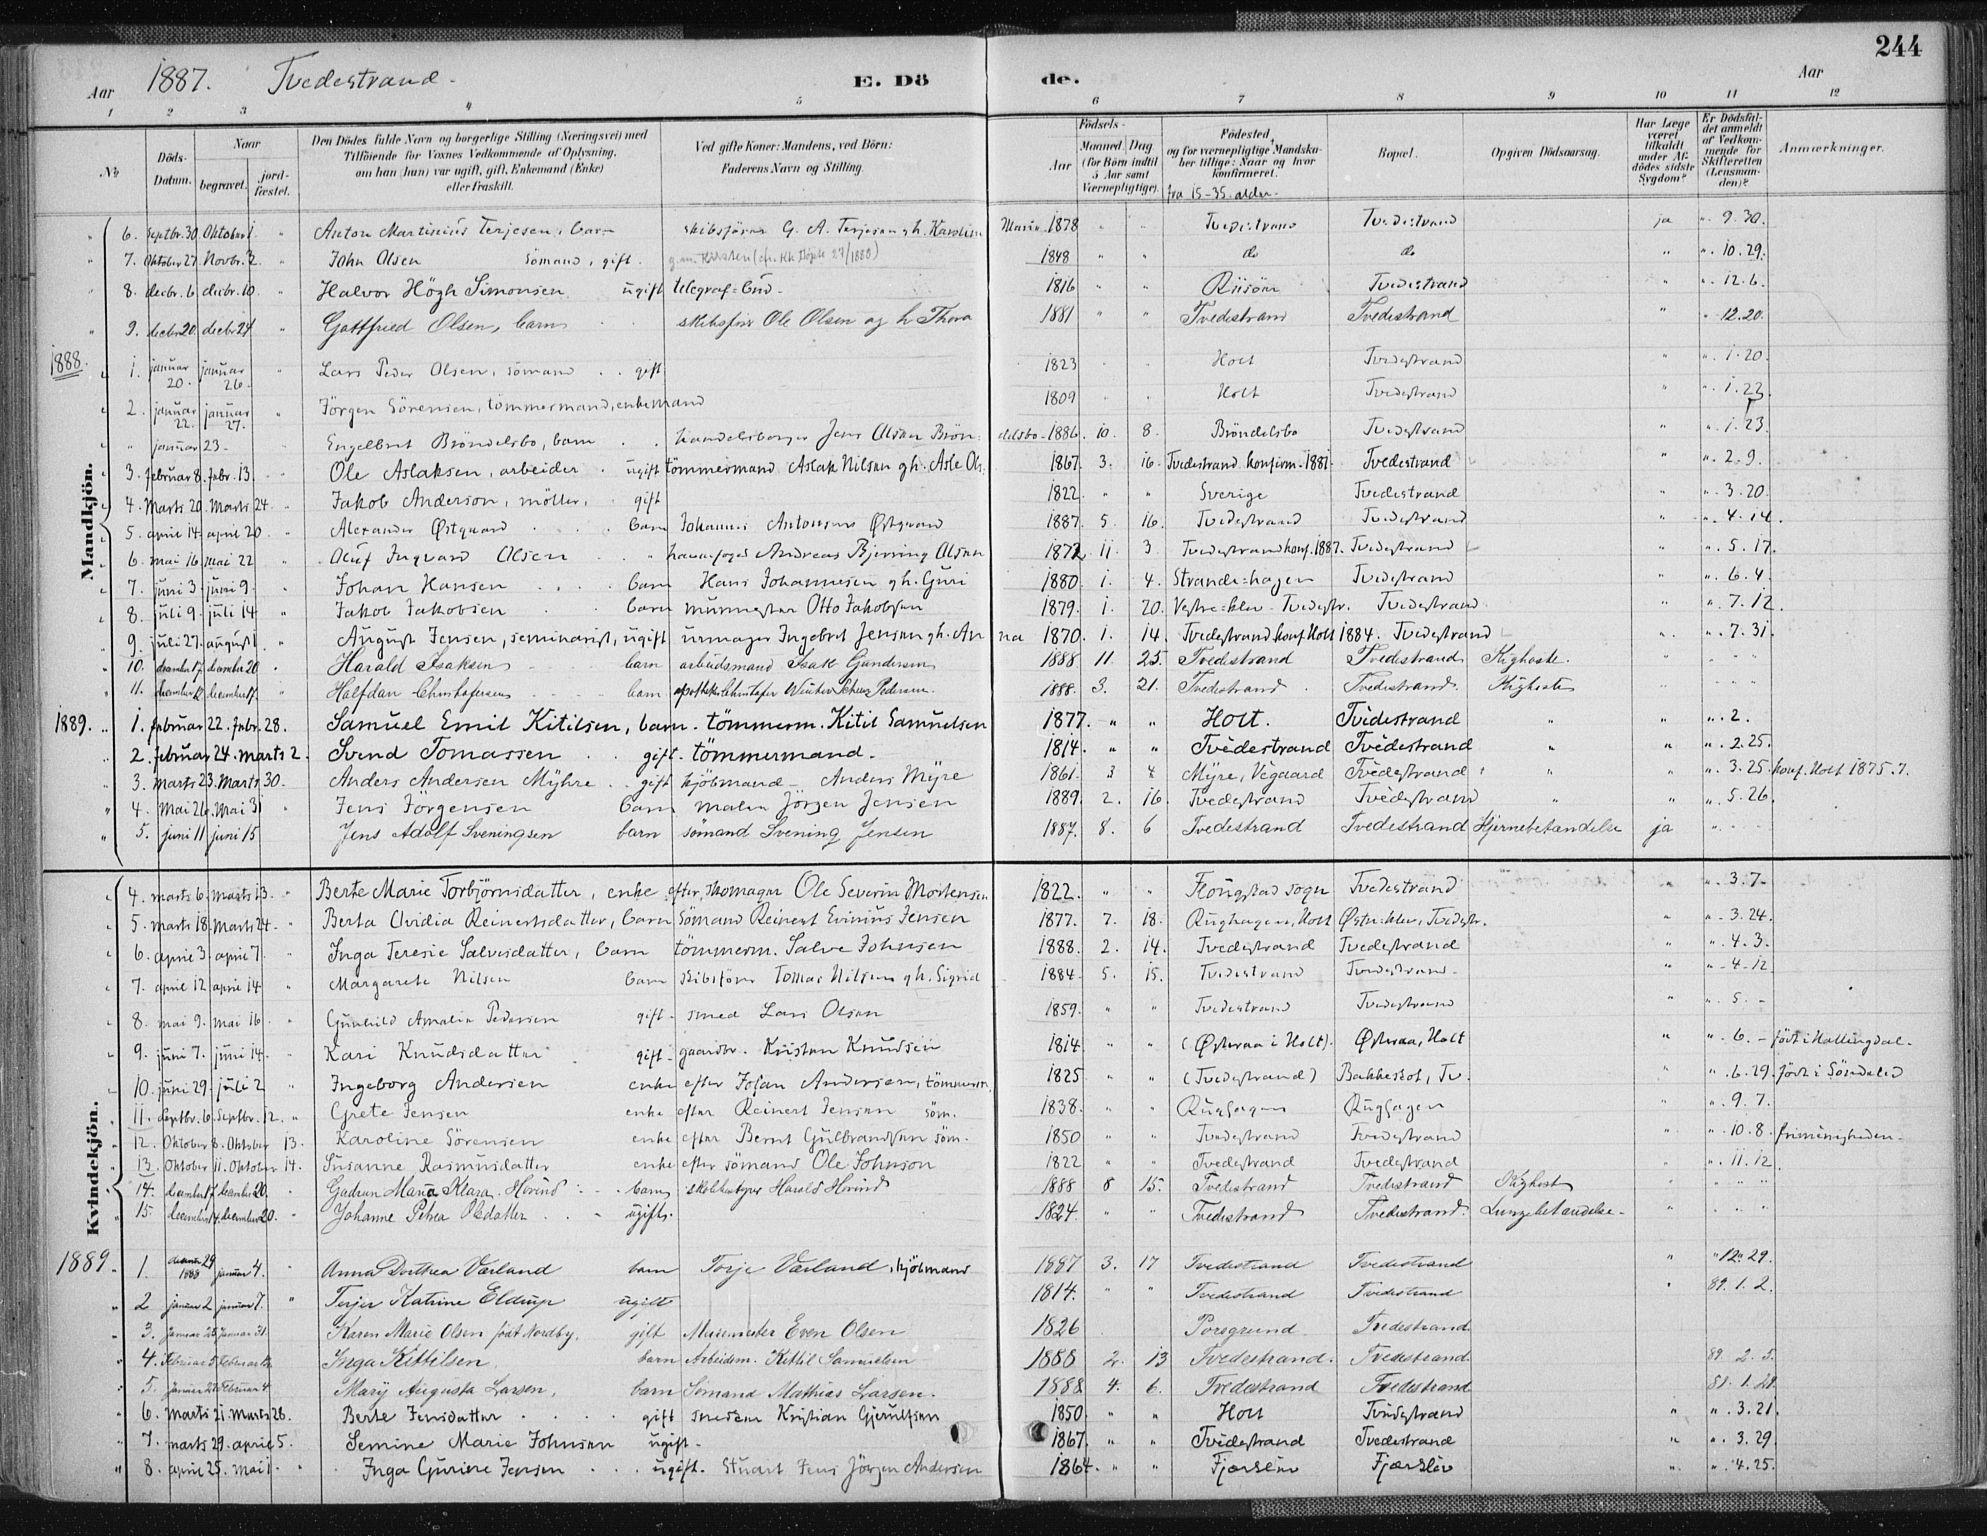 244
Aar 1887. Tvedestrand. E. Dö de. Aar
1 2 3 4 5 6 7 8 9 10 11 12
No. Döds-Datum. Naar begravet. jordfæstet. Den Dödes fulde Navn og borgerlige Stilling (Næringsvei) med Tilföiende for Voxnes Vedkommende af Oplysning, om han (hun) var ugift, gift, Enkemand (Enke) eller fraskilt. Ved gifte Koner: Mandens, ved Börn: Faderens Navn og Stilling. Födsels- Aar Maaned. Dag (for Börn indtil 5 Aar samt Værnepligtige). Födested, og for værnepligtige Mandskaber tillige: Naar og hvor konfirmeret. fra 15-35. alder. Bopæl. Opgiven Dödsaarsag. Har Læge været tilkaldt under Afdödes sidste Sygdom? Er Dödsfaldet anmeldt af Vedkommende for Skifteretten (Lensmanden)? Anmærkninger.
Mandkjön.
" 6. Septbr. 30 Oktober 1 " Anton Martinius Terjesen, barn skibsförer G. A. Terjesen gh. Karoline Marie 1878 " " Tvedestrand Tvedestrand ja ". 9. 30.
" 7. Oktober 27. Novbr. 2. " John Olsen sömand, gift. 1848 " " do do " ". 10. 29.
" 8. decbr. 6 decbr. 10. " Halvor Högh Simonsen ugift telegraf-bud. 1816 " " Riisöer Tvedestrand " ". 12. 6.
" 9. decbr 20. decbr 24 " Gottfried Olsen, barn skibsför Ole Olsen og h. Thora 1881 " " Tvedestrand Tvedestrand " " 12. 20.
1888. 1. januar 20. januar 26. " Lars Peder Olsen, sömand gift 1823 " " Holt Tvedestrand " ". 1. 20.
2. januar 22. januar 27. " Jörgen Sörensen, tömmermand, enkemand 1809 " " Holt Tvedestrand " ". 1. 22.
" januar 23 - Engelbret Bröndelsbo, barn handelsborger Jens Olsen Bröndelsbo 1886. 10. 8. Bröndelsbo Tvedestrand " ". 1. 23.
3. februar 8. febr. 13. Ole Aslaksen, arbeider ugift tömmermand Aslak Nilsen gh. Asle Ols. 1867. 3. 16. Tvedestrand konfirm. 1881. Tvedestrand " ". 2. 9.
4. Marts 20. Marts 24 " Jakob Anderson, möller, gift 1822. " " Sverige Tvedestrand " ". 3. 20.
5. april 14. april 20 " Alexander Østgaard barn Johannes Antonsens Østgaard 1887. 5. 16. Tvedestrand Tvedestrand " ". 4. 14.
6. mai 16 mai 22 " Oluf Ingvard Olsen " havnefoged Andreas Bjerring Olsen 1872 11. 3. Tvedestrand konf. 1887. Tvedestrand " ". 5. 17.
7. juni 3. juni 9. " Johan Hansen barn Hans Johannesen gh. Guri 1880. 1. 4. Strande-hagen Tvedestrand " ". 6. 4.
8. juli 9. juli 14 " Jakob Jakobsen barn murmester Otto Jakobsen 1879. 1. 20. Vestre-klev Tvedestr. Tvedestrand " ". 7. 12.
9. juli 27. august 1. " August Jensen, seminarist, ugift urmager Ingebret Jensen gh. Anna 1870. 1. 14. Tvedestrand konf. Holt 1884. Tvedestrand " ". 7. 31.
10. december 17 december 20 " Harald Isaksen barn arbeidsmand Isak Gundersen 1888 11 25. Tvedestrand Tvedestrand Kighoste. " " "
11. december 12 december 17. " Halfdan Christofersens barn apotheker Christofer Winter Pedersen. 1888. 3. 21. Tvedestrand Tvedestrand. Kighoste " " "
1889. 1. februar 22. febr. 28. Samuel Emil Kitilsen, barn. tömmerm. Kitil Samuelsen 1877. " " Holt. Tvedestrand " " ". 2.
2. februar 24. marts 2. Svend Tomassen gift. tömmermand. 1814. " " Tvedestrand Tvedestrand " " ". 2. 25.
3. marts 23. Marts 30. Anders Andersen Myhre gift kjöbmand - Anders Myre 1861. 3 4 Myre, Vegaard Tvedestrand " " ". 3. 25. konf. Holt 1875. 7.
4. Mai 26. Mai 31 " Jens Jörgensen barn maler Jörgen Jensen 1889. 2. 16. Tvedestrand Tvedestrand " " ". 5. 26.
5. juni 11 juni 15 Jens Adolf Sveningsen barn sömand Svening Jensen 1887. 8. 6 Tvedestrand Tvedestrand Hjernebetændelse ja " "
Kvindekjön.
4. marts 6. marts 13. " Berte Marie Torbjörnsdatter, enke efter skomager Ole Severin Mortensen 1822. " " sogn Tvedestrand " ". 3. 7.
5. marts 18. marts 24. " Berta Ovidia Reinertsdatter, barn sömand Reinert Evinius Jensen 1877. 7. 18. Rughagen, Holt Østreklev, Tvedestr. " ". 3. 24.
6. april 3. april 7. " Inga Teresie Salvesdatter, barn tömmerm. Salve Johnsen 1888. 2. 14. Tvedestrand Tvedestrand " ". 4. 3.
7. april 12 april 14 " Margarete Nilsen barn skibsförer Tomas Nilsen gh. Sigrid 1884. 5. 15. Tvedestrand Tvedestrand " ". 4. 12
8. mai 9. mai 16. " Gunhild Amalie Pedersen gift. smed Lars Olsen 1859. " " Tvedestrand Tvedestrand " ". 5. -
9. juni 7. juni 14. " Kari Knudsdatter gift. gaardbr. Kristen Knudsen 1814. " " (Østeraa i Holt). Østeraa, Holt " ". 6. - födt i Hallingdal.
10. juni 29. juli 2 " Ingeborg Andersen enke efter Johan Andersen, tömmerm. 1825 " " (Tvedestrand) Bakkeskot, Tv. " ". 6. 29. födt i Söndeled
11. Septbr. 6. Septbr. 12. " Grete Jensen enke efter Reinert Jensen söm. 1838. " " Rughagen Rughagen " ". 9. 7.
12. Oktober 8. Oktober 13. Karoline Sörensen enke efter Bernt Gulbrandsen söm. 1850 " " Tvedestrand Tvedestrand " ". 10. 8. frimenigheden.
13. Oktober 11. Oktober 14. Susanne Rasmusdatter enke efter sömand Ole Johnson 1822 " " Tvedestrand Tvedestrand " ". 11. 12.
14. december 17 december 20. " Gudrun Maria Klara Hovind barn skolebestyrer Harald Hovind 1888 8 15. Tvedestrand Tvedestrand Kighoste " " "
15. december 14. december 20. " Johanne Petrea Olsdatter ugift. 1824. " " Tvedestrand Tvedestrand. Lungebetændelse. " " "
1889. 1. december 29 1888 januar 4. " Anna Dorthea Værland barn Torje Værland, kjöbmand 1887 3. 17 Tvedestrand Tvedestrand " " 12. 29.
" 2 januar 2 januar 7. " Terjer Katrine Eldrup ugift 1814. " " Tvedestrand Tvedestrand " 89. 1. 2.
3. Januar 25 Januar 31 Karen Marie Olsen födt Nordby. gift Murmester Even Olsen 1826 Porsgrund Tvedestrand
4. Februar 5. Februar Inga Kittilsen. barn Arbeidsm. Kittil Samuelsen 1888 2. 13 Tvedestrand. Tvedestrand 89. 2. 5.
5. Januar 28 Februar 4 Mary Augusta Larsen, barn Sömand Mathias Larsen. 1888 4. 6. Tvedestrand Tvedestrand 89. 1. 28
6. Marts 21. Marts 28. Berte Jensdatter gift smeden Kristian Gjerulfsen 1850. " " Holt Tvedestrand " ". 3. 21.
7. marts 29. april 5. Semine Marie Johnsen ugift. 1867. " " Tvedestrand Tvedestrand " ". 3. 29.
" 8. april 25. mai 1. " Inga Gurine Jensen ugift. Stuart Jens Jörgen Andersen 1864. " " Fjærslev Fjærslev " ". 4. 25.